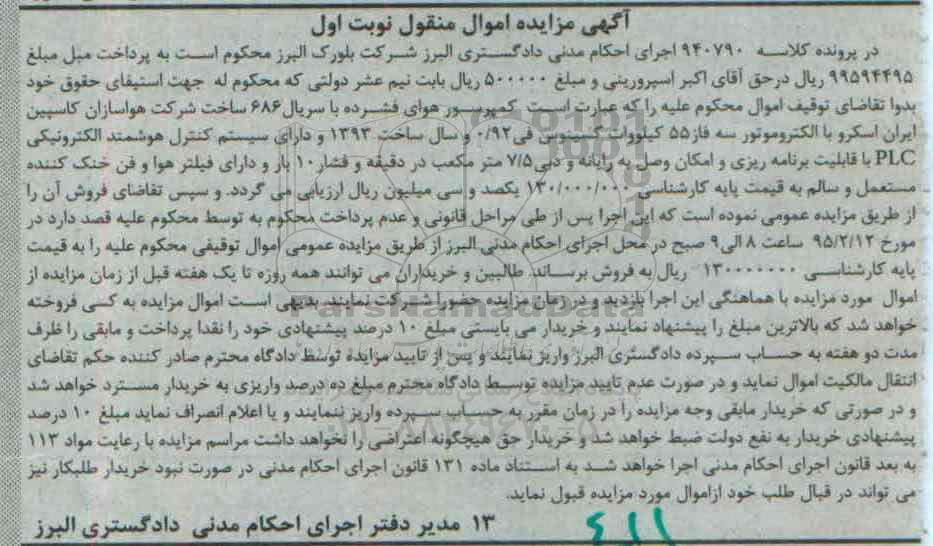 آگهی مزایده اموال منقول نوبت اول
در پرونده کلاسه ۹۴۰۷۹۰ اجرای احکام مدنی دادگستری البرز شرکت بلورک البرز محکوم است به پرداخت مبل مبلغ
۹۹۵۹۴۴۹۵ ریال درحق آقای اکبر اسپرورینی و مبلغ ۵۰۰۰۰۰ ریال بابت نیم عشر دولتی که محکوم له جهت استیفای حقوق خود
بدوا تقاضای توقیف اموال محکوم علیه را که عبارت است کمپرسور هوای فشرده با سریال ۶۸۶ ساخت شرکت هواسازان کاسپین
ایران اسکرو با الکتروموتور سه فاز ۵۵ کیلووات کسینوس فی ۰/۹۲ و سال ساخت ۱۳۹۳ و دارای سیستم کنترل هوشمند الکترونیکی
PLC با قابلیت برنامه ریزی و امکان وصل به رایانه و دبی ۷/۵ متر مکعب در دقیقه و فشار ۱۰ بار و دارای فیلتر هوا و فن خنک کننده
مستعمل و سالم به قیمت پایه کارشناسی ۱۳۰/۰۰۰/۰۰۰ یکصد و سی میلیون ریال ارزیابی می گردد. و سپس تقاضای فروش آن را
از طریق مزایده عمومی نموده است که این اجرا پس از طی مراحل قانونی و عدم پرداخت محکوم به توسط محکوم علیه قصد دارد در
مورخ ۹۵/۲/۱۲ ساعت ۸ الی ۹ صبح در محل اجرای احکام مدنی البرز از طریق مزایده عمومی اموال توقیفی محکوم علیه را به قیمت
پایه کارشناسی ۱۳۰۰۰۰۰۰۰ ریال به فروش برساند. طالبین و خریداران می توانند همه روزه تا یک هفته قبل از زمان مزایده از
اموال مورد مزایده با هماهنگی این اجرا بازدید و در زمان مزایده حضورا شرکت نمایند. بدیهی است اموال مزایده به کسی فروخته
خواهد شد که بالاترین مبلغ را پیشنهاد نمایند و خریدار می بایستی مبلغ ۱۰ درصد پیشنهادی خود را نقدا پرداخت و مابقی را ظرف
مدت دو هفته به حساب سپرده دادگستری البرز واریز نمایند و پس از تایید مزایده توسط دادگاه محترم صادر کننده حکم تقاضای
انتقال مالکیت اموال نماید و در صورت عدم تایید مزایده توسط دادگاه محترم مبلغ ده درصد واریزی به خریدار مسترد خواهد شد
و در صورتی که خریدار مابقی وجه مزایده را در زمان مقرر به حساب سپرده واریز ننمایند و یا اعلام انصراف نماید مبلغ ۱۰ درصد
پیشنهادی خریدار به نفع دولت ضبط خواهد شد و خریدار حق هیچگونه اعتراضی را نخواهد داشت مراسم مزایده با رعایت مواد ۱۱۳
به بعد قانون اجرای احکام مدنی اجرا خواهد شد به استناد ماده ۱۳۱ قانون اجرای احکام مدنی در صورت نبود خریدار طلبکار نیز
می تواند در قبال طلب خود ازاموال مورد مزایده قبول نماید.
۱۳ مدیر دفتر اجرای احکام مدنی دادگستری البرز
ParsNamadData